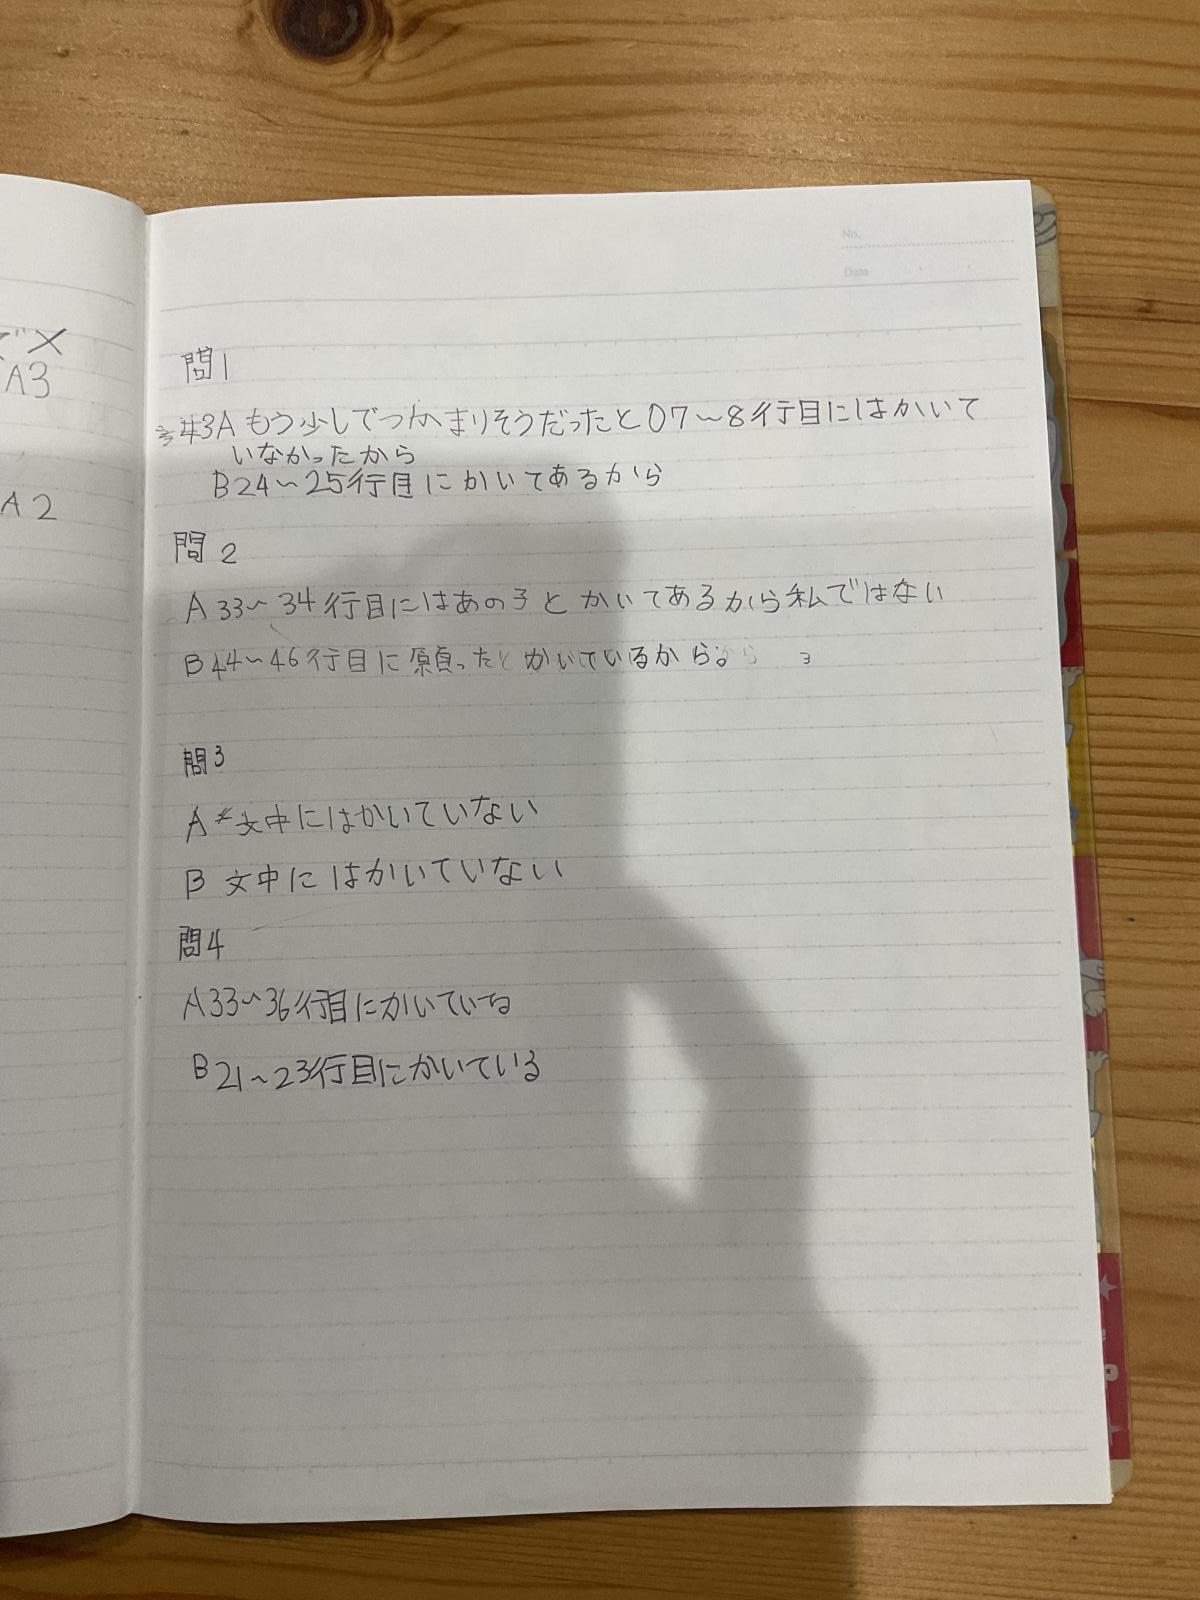 で×
A3
A2
No.
Date
問1
#3A もう少しでつかまりそうだったと07〜8行目にはかいて
いなかったから
B24〜25行目にかいてあるから
問2
A 33〜34行目にはあの子とかいてあるから私ではない
B44〜46行目に ったとかいているから。 3
問3
A 文中にはかいていない
B 文中にはかいていない
問4
A33〜36行目にかいている
B21〜23行目にかいている